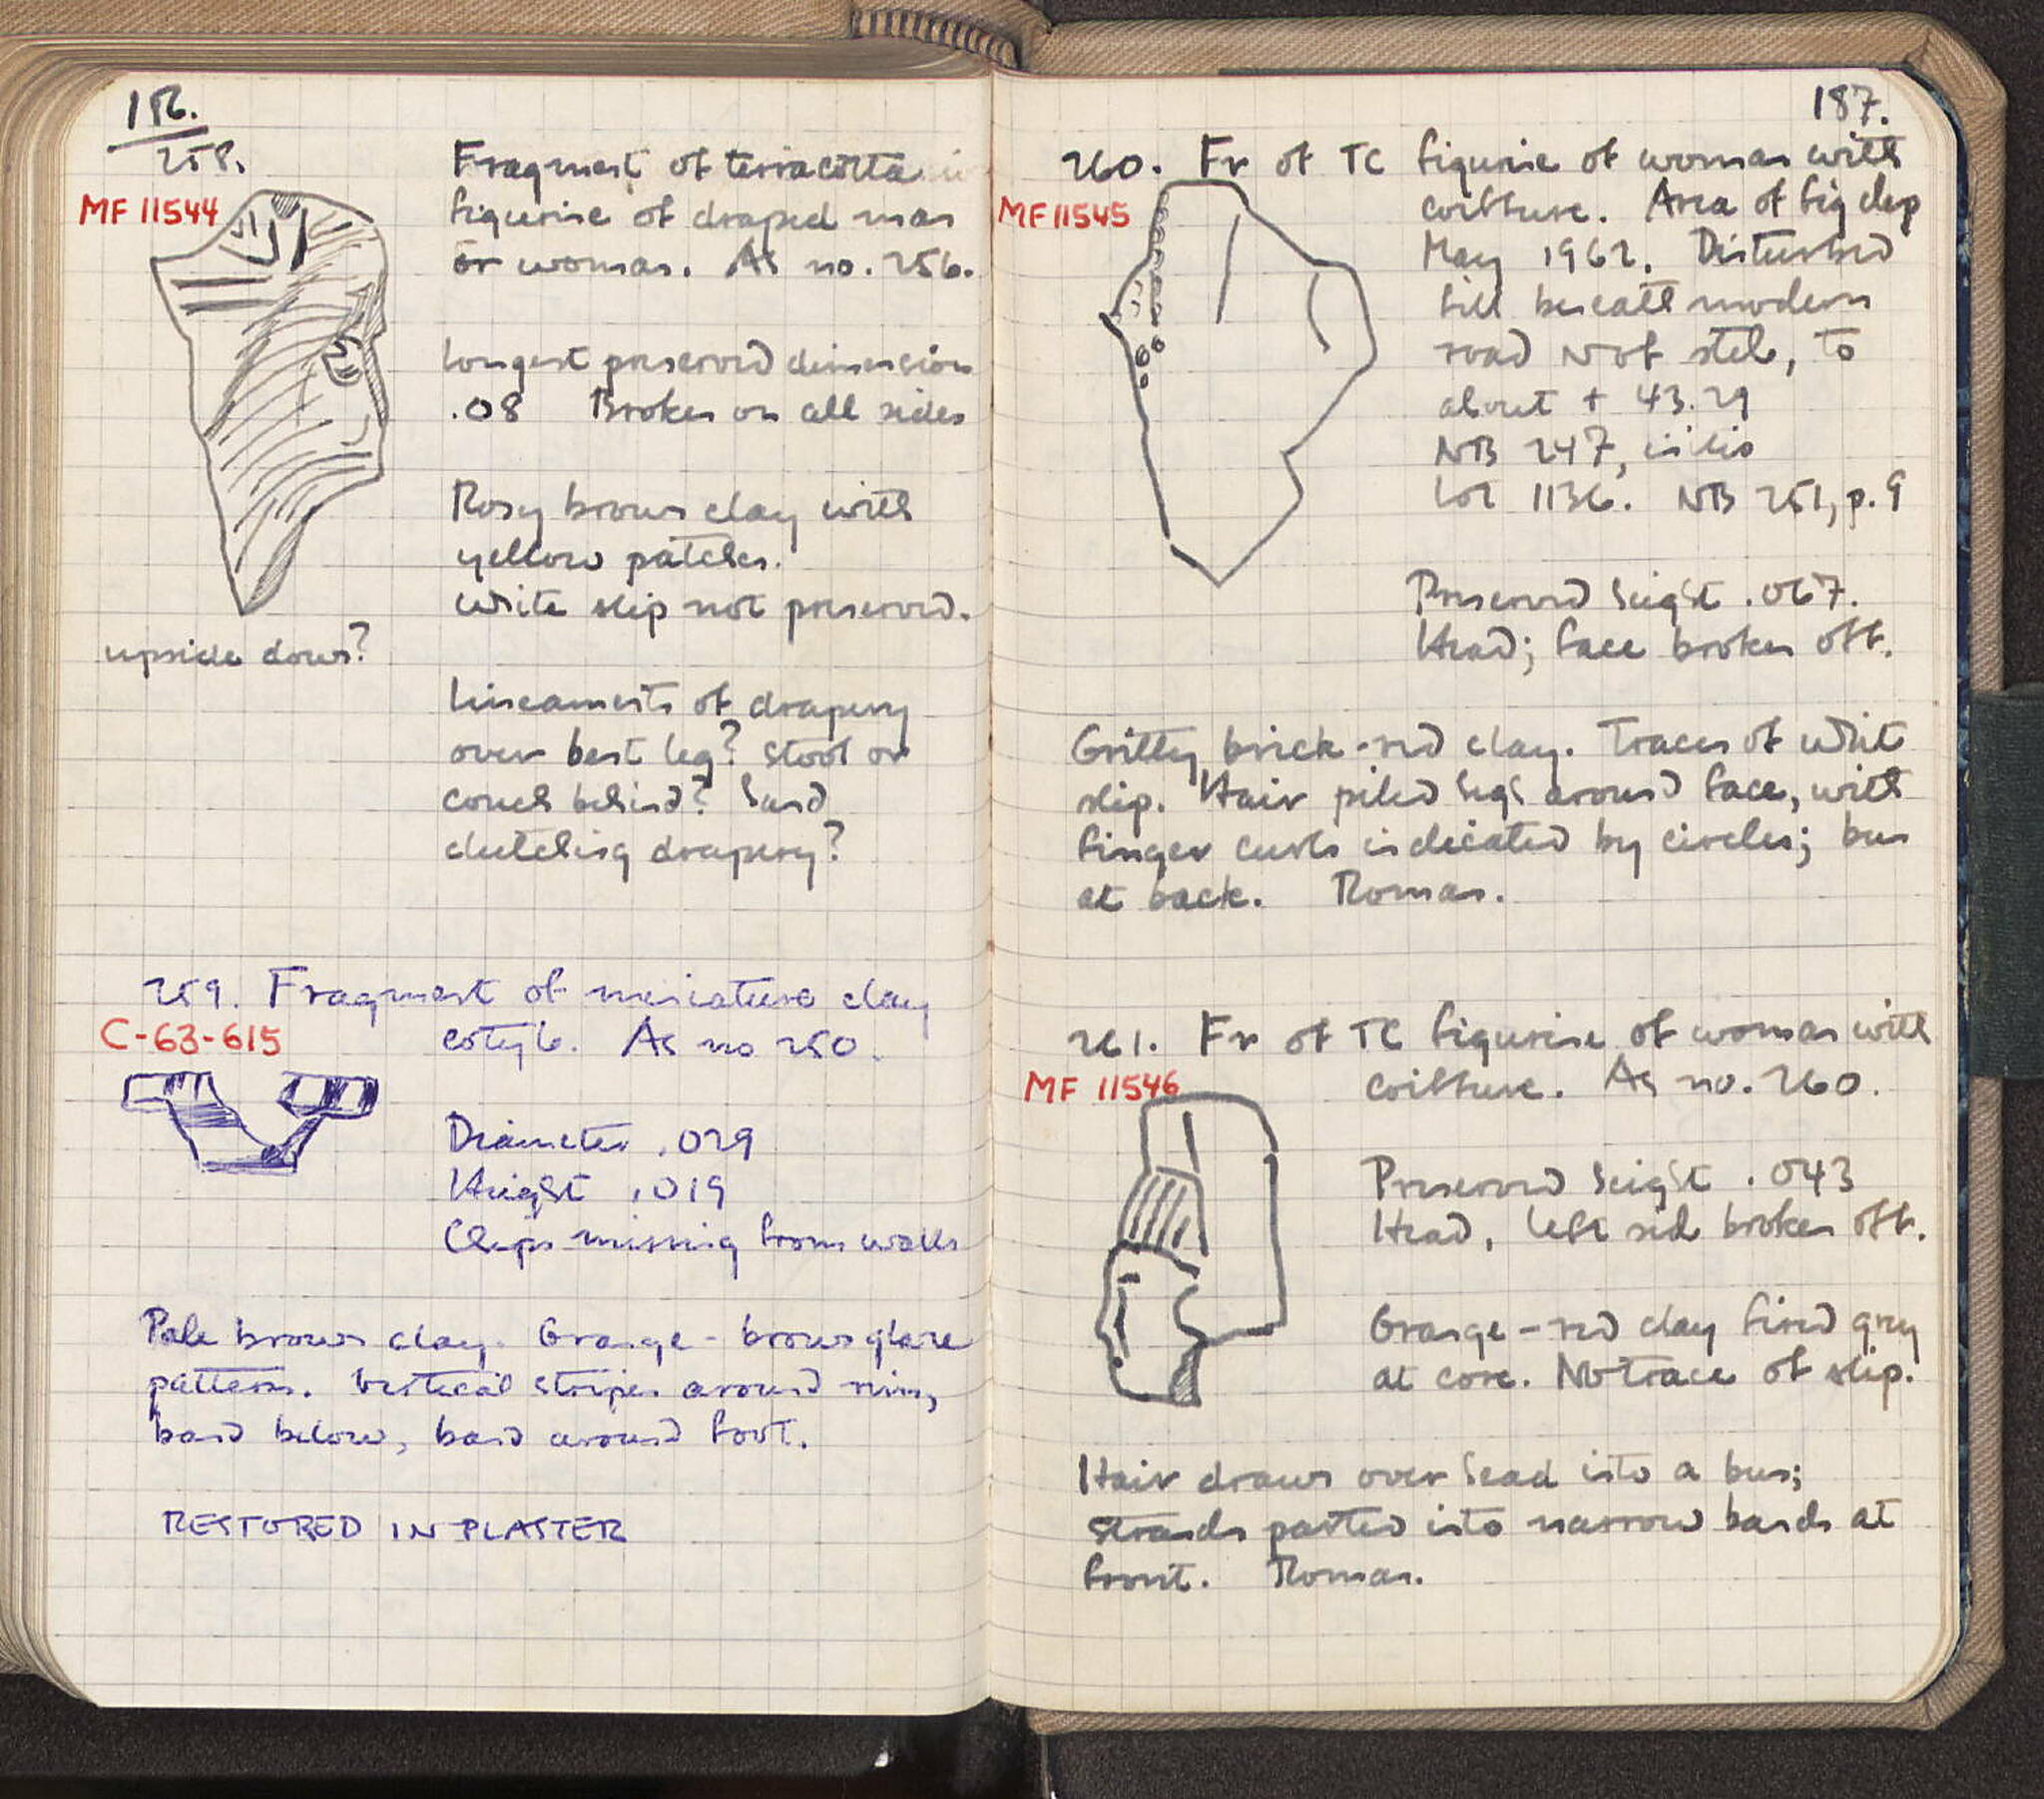 186.
258.
MF 11544
Fragment of terracotta
figurine of draped man
or woman. As no. 256.
Longest preserved dimension
.08 Broken on all sides
Rosy brown clay with
yellow patches.
White slip not preserved.
upside down?
Lineaments of drapery
over bent leg? Stool or
couch behind? Hand
clutching drapery?
259. Fragment of miniature clay
C-63-615
kotyle. As no 250.
Diameter .029
Height .019
Chips missing from walls
Pale brown clay. Orange-brown glaze
pattern. Vertical stripes around rim,
band below, band around foot.
RESTORED IN PLASTER
187.
260. Fr of TC figurine of woman with
MF 11545
coiffure. Area of
May 1962. Disturbed
fill beneath modern
road N of to
about + 43.29
NB 247,
Lot 1136. NB 251, p. 9
Preserved height .067.
Head; face broken off.
Gritty brick-red clay. Traces of white
slip. Hair piled high around face, with
finger curls indicated by circles; bun
at back. Roman.
261. Fr of TC figurine of woman with
MF 11546
coiffure. As no. 260.
Preserved height .043
Head, left side broken off.
Orange-red clay fired grey
at core. No trace of slip.
Hair drawn over head into a bun;
strands parted into narrow bands at
front. Roman.